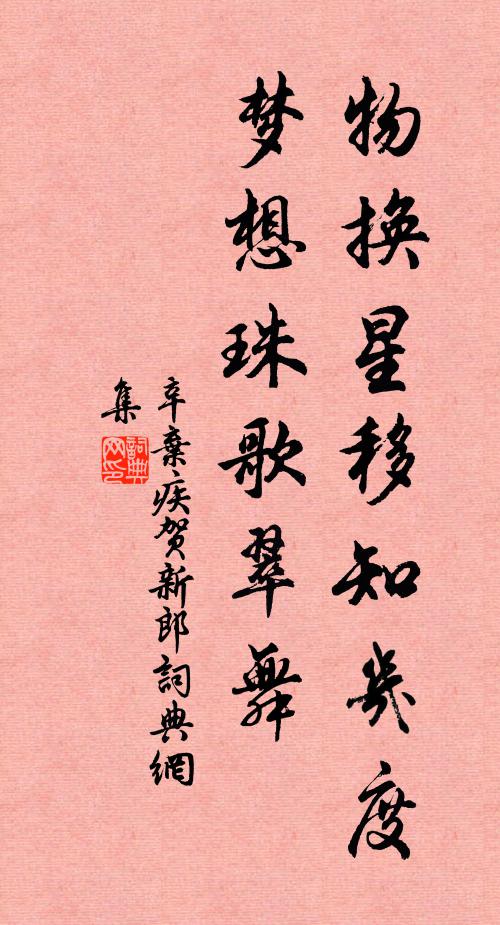 物换星移知几度
梦想珠歌翠舞
辛棄疾贺新郎詞典網
集
詞典网印